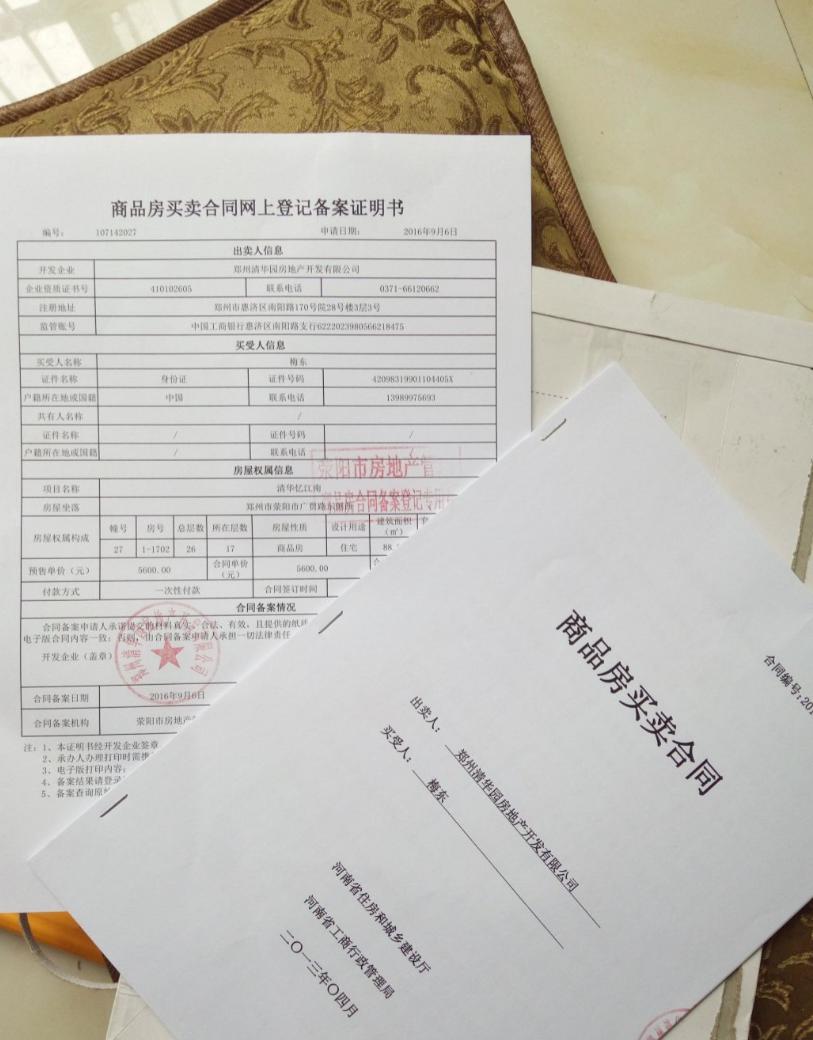 商品房买卖合同网上登记备案证明书
编号： 107142027 申请日期： 2016年9月6日
出卖人信息
开发企业 郑州清华园房地产开发有限公司
企业资质证书号 410102605 联系电话 0371-66120662
注册地址 郑州市惠济区南阳路170号院28号楼3层3号
监管账号 中国工商银行惠济区南阳路支行6222023980566218475
买受人信息
买受人名称 梅东
证件名称 身份证 证件号码 42098319901104405X
户籍所在地或国籍 中国 联系电话 13989975693
共有人名称 /
证件名称 / 证件号码 /
户籍所在地或国籍 / 联系电话 /
房屋权属信息
荥阳市房地产管
商品房合同备案登记专用
项目名称 清华忆江南
房屋坐落 郑州市荥阳市广贾路东侧
房屋权属构成 幢号 房号 总层数 所在层数 房屋性质 设计用途 建筑面积（㎡）
27 1-1702 26 17 商品房 住宅 88.
预售单价（元） 5600.00 合同单价（元） 5600.00
付款方式 一次性付款 合同签订时间
合同备案情况
合同备案申请人承诺提交的材料真实、合法、有效，且提供的纸质
电子版合同内容一致；否则，由合同备案申请人承担一切法律责任
开发企业（盖章）
合同备案日期 2016年9月6日
合同备案机构 荥阳市房地产
注：1、本证明书经开发企业签章
2、承办人办理打印时需携
3、电子版打印内容：
4、备案结果请登录
5、备案查询原
合同编号：201
商品房买卖合同
出卖人： 郑州清华园房地产开发有限公司
买受人： 梅东
河南省住房和城乡建设厅
河南省工商行政管理局
二〇一三年〇四月